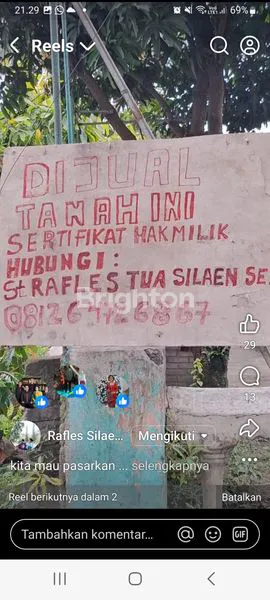 21.29
69%
Reels
DIJUAL
TANAH INI
SERTIFIKAT HAK MILIK
HUBUNGI:
St RAFLES TUA SILAEN SE
Brighton
29
13
Rafles Silae... Mengikuti
kita mau pasarkan ... selengkapnya
Reel berikutnya dalam 2
Batalkan
Tambahkan komentar...
GIF